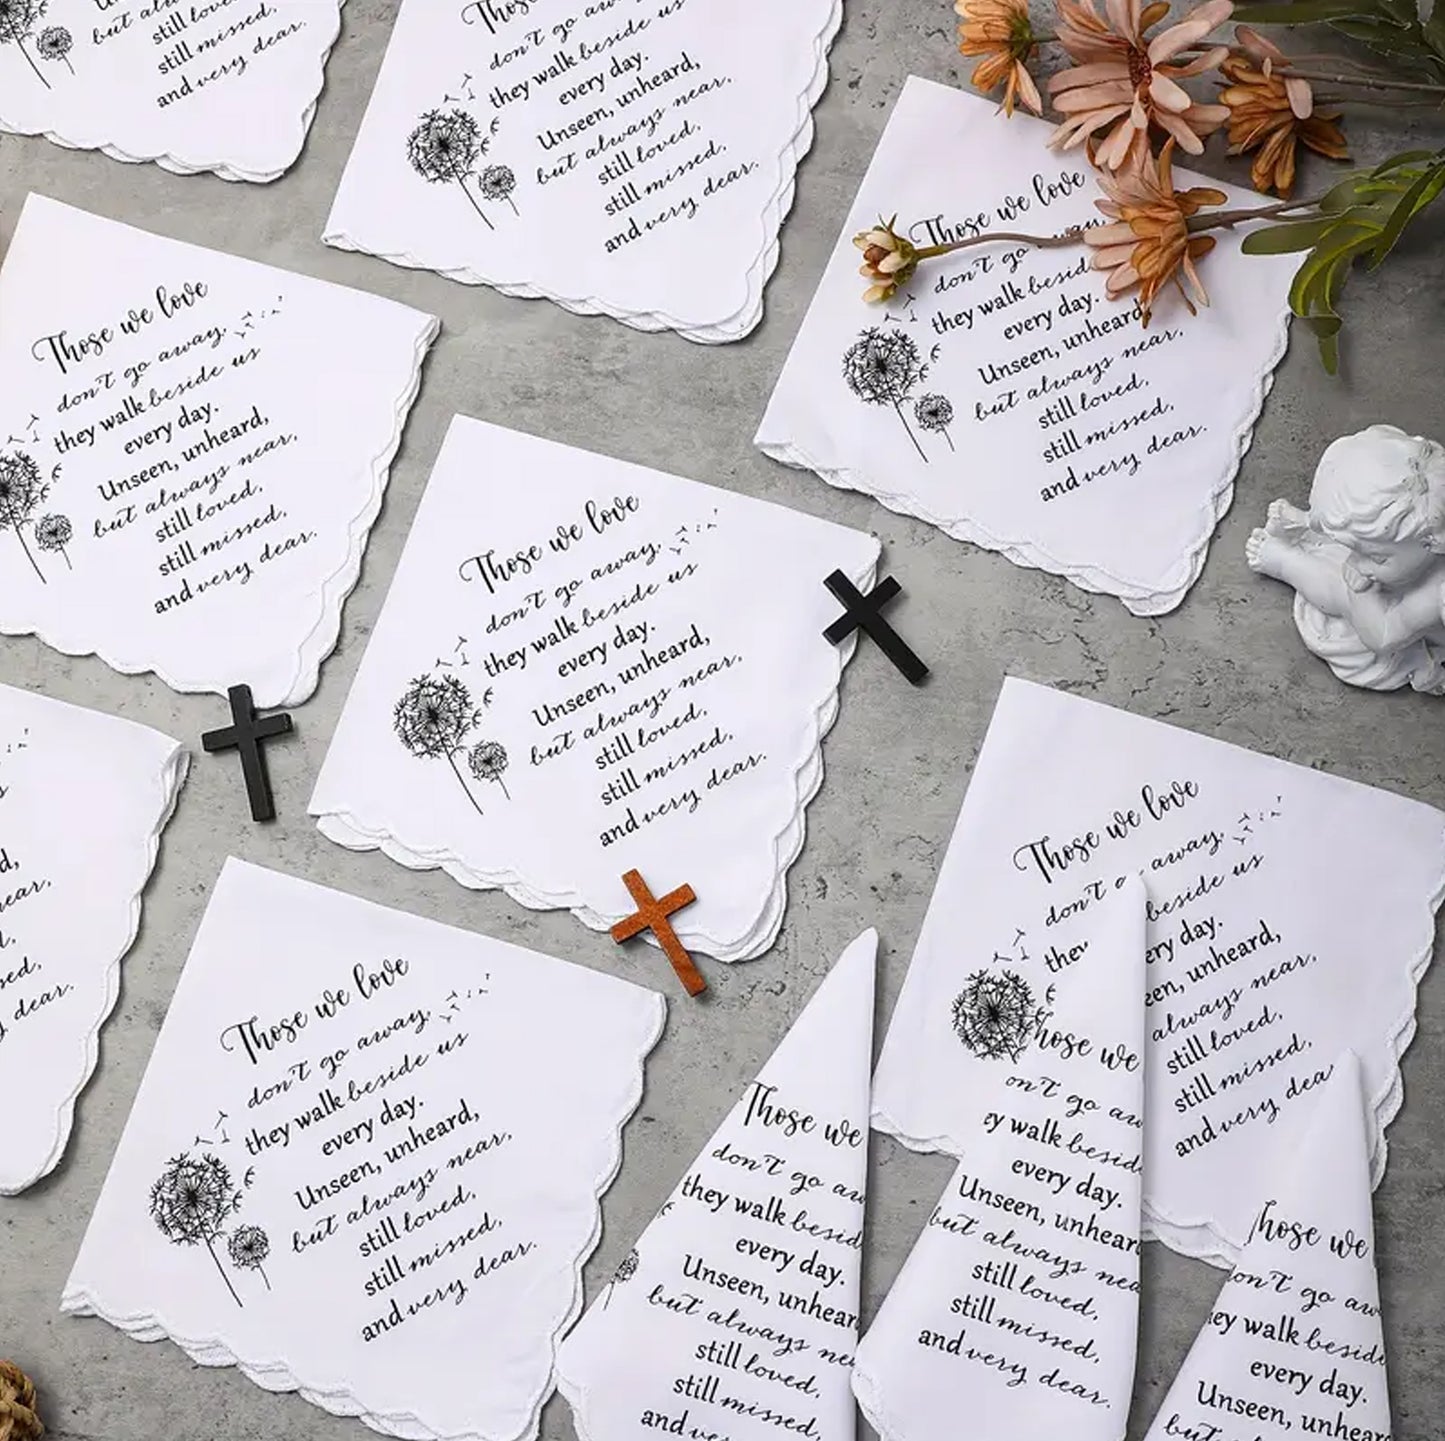 still
still missed,
and very dear.
Those
don't go away
they walk beside us
every day.
Unseen, unheard,
but always near,
still loved,
still missed,
and very dear.
Those we love
don't go
they walk besid
every day.
Unseen, unheard,
but always near,
still loved,
still missed,
and very dear.
Those we love
don't go away,
they walk beside us
every day.
Unseen, unheard,
but always near,
still loved,
still missed,
and very dear.
Those we love
don't go away,
they walk beside us
every day.
Unseen, unheard,
but always near,
still loved,
still missed,
and very dear.
d,
ear,
d,
sed,
y dear.
Those we love
don't go away,
they walk beside us
every day.
Unseen, unheard,
but always near,
still loved,
still missed,
and very dear.
Those we love
don't away,
the beside us
ery day.
een, unheard,
always near,
still loved,
still missed,
and very dea
Those we
don't go aw
they walk besid
every day.
Unseen, unhear
but always ne
still loved,
still missed,
and ve
hose we
on't go aw
ey walk besid
every day.
Unseen, unhear
but always nea
still loved,
still missed,
and very dear.
hose we
on't go aw
ey walk besid
every day.
Unseen, unhea
but